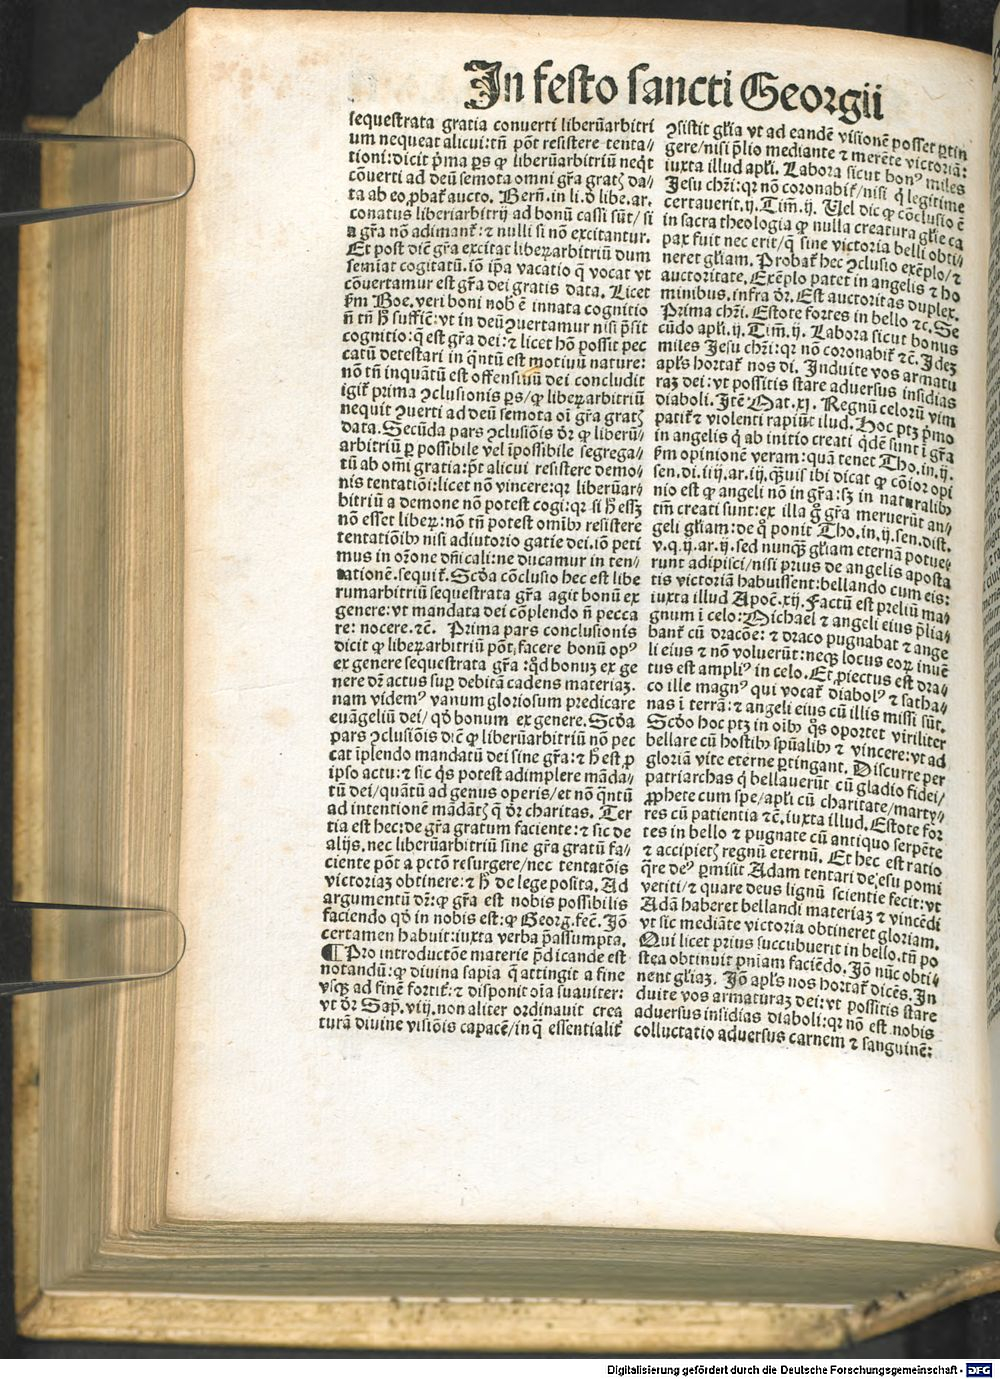 In festo sancti Georgii
sequestrata gratia conuerti liberũarbitri
um nequeat alicui:tñ põt resistere tenta//
tioni:dicit pͥma ps ꝙ liberũarbitriũ neq̃t
cõuerti ad deũ semota omni gr̃a gratꝭ da//
ta ab eo,pbat̃ aucto. Berñ.in li.d̃ libe.ar.
conatus liberiarbitrij ad bonũ cassi sũt/ si
a gr̃a nõ adimant̃:⁊ nulli si nõ excitantur.
Et post diẽt gr̃a excitat liberꝝarbitriũ dum
semiat cogitatũ.iõ ip̃a vacatio q̃ vocat vt
cõuertamur est gr̃a dei gratis data. Licet
ẜm Boe.veri boni nob̃ ẽ innata cognitio
ñ tñ h̃ suffiẽ:vt in deũꝯuertamur nisi p̃sit
cognitio:q̃ est gr̃a dei:⁊ licet hõ possit pec
catũ detestari in q̃ntũ est motiuũ nature:
nõ tñ inquãtũ est offensiuũ dei concludit
igit̃ prima ꝯclusionis ps/ꝙ liberꝝarbitriũ
nequit ꝯuerti ad deũ semota oĩ gr̃a gratꝭ
data. Secũda pars ꝯclusiõis dr̃ ꝙ liberũ//
arbitriũ ꝑ possibile vel ĩpossibile segrega//
tũ ab omĩ gratia:p̃t alicui resistere demo//
nis tentatiõi:licet nõ vincere:qꝛ liberũar//
bitriũ a demone nõ potest cogi:qꝛ si h̃ esꝫ
nõ esset liberꝝ:nõ tñ potest omĩbꝰ resistere
tentatiõibꝰ nisi adiutorio gatie dei.iõ peti
mus in orõne dñicali:ne ducamur in ten//
tationẽ.sequit̃. Scďa cõclusio hec est libe
rumarbitriũ sequestrata gr̃a agit bonũ ex
genere:vt mandata dei cõplendo ñ pecca
re: nocere.⁊c. Prima pars conclusionis
dicit ꝙ liberꝝarbitriũ põt,facere bonũ opꝰ
ex genere sequestrata gr̃a :q̃d bonuꝫ ex ge
nere dꝛ actus suꝑ debitã cadens materiaꝫ.
nam videmꝰ vanum gloriosum predicare
euãgeliũ dei/ qď bonum ex genere. Scďa
pars ꝯclusiõis diẽt ꝙ liberũarbitriũ nõ pec
cat ĩplendo mandatũ dei sine gr̃a:⁊ h̃ est ꝓ
ipso actu:⁊ sic q̃s potest adimplere mãda//
tũ dei/quãtũ ad genus operis/et nõ q̃ntũ
ad intentionẽ mãdãtꝭ q̃ dr̃ charitas. Ter
tia est hec:de gr̃a gratum faciente:⁊ sic de
alijs.nec liberũarbitriũ sine gr̃a gratũ fa//
ciente põt a pctõ resurgere/nec tentatõis
victoriaꝫ obtinere:⁊ h̃ de lege posita. Ad
argumentũ dr̃:ꝙ gr̃a est nobis possibilis
faciendo qď in nobis est:ꝙ Georg.fec̃. Iõ
certamen habuit:iuxta verba p̃assumpta.
¶ Pro introductõe materie p̃dicande est
notandũ:ꝙ diuina sapia q̃ attingit a fine
vsqꝫ ad finẽ fortit̃:⁊ disponit oĩa suauiter:
vt dr̃ Sap̃.viij.non aliter ordinauit crea
turã diuine visiõis capacẽ/in q̃ essentialit̃
ꝯsistit gl̃ia vt ad eandẽ visionẽ posset ꝑtin
gere/nisi p̃lio mediante ⁊ merẽte victoriã:
iuxta illud apl̃i. Labora sicut bonꝰ miles
Jesu chr̃i:qꝛ nõ coronabit̃/nisi q̃ legitime
certauerit.ij. Tim̃.ij. Uel dic ꝙ cõclusio ẽ
in sacra theologia ꝙ nulla creatura gl̃ie ca
pax fuit nec erit/q̃ sine victoria belli obti//
neret gl̃iam. Probat̃ hec ꝯclusio exẽplo/⁊
auctoritate. Exẽplo patet in angelis ⁊ ho
minibus.infra dr̃. Est auctoritas duplex.
Prima chr̃i. Estote fortes in bello ⁊c. Se
cũdo apl̃i.ij. Tim̃.ij. Labora sicut bonus
miles Jesu chr̃i:qꝛ nõ coronabit̃ ⁊c̃. Ideꝫ
apl̃s hortat̃ nos di. Induite vos armatu
raꝫ dei:vt possitis stare aduersus insidias
diaboli. Itẽ Mat.xj. Regnũ celorũ vim
patit̃ ⁊ violenti rapiũt ilud. Hoc ptꝫ p̃mo
in angelis q̃ ab initio creati q̃dẽ sunt ĩ gr̃a
ẜm opinionẽ veram:quã tenet Tho.in.ij.
sen.di.iiij.ar.iij.q̃uis ibi dicat ꝙ cõior opi
nio est ꝙ angeli nõ in gr̃a:sꝫ in naturalibꝰ
tm̃ creati sunt:ex illa g̃ gr̃a meruerũt an//
geli gl̃iam:de q̃ ponit Tho.in.ij.sen.dist.
v.q.ij.ar.ij.sed nunq̃ gl̃iam eternã potue//
runt adipisci/nisi prius de angelis aposta
tis victoriã habuissent:bellando cum eis:
iuxta illud Apoc̃.xij. Factũ est preliũ ma//
gnum ĩ celo:Michael ⁊ angeli eius p̃lia//
bant̃ cũ dracõe: ⁊ draco pugnabat ⁊ ange
li eius ⁊ nõ voluerũt:neqꝫ locus eorꝝ inuẽ
tus est ampliꝰ in celo. Et,piectus est dra//
co ille magnꝰ qui vocat̃ diabolꝰ ⁊ satha//
nas ĩ terrã:⁊ angeli eius cũ illis missi sũt.
Scďo hoc ptꝫ in oĩbꝰ q̃s oportet viriliter
bellare cũ hostibꝰ spũalibꝰ ⁊ vincere:vt ad
gloriã vite eterne ꝑtingant. Discurre per
patriarchas q̃ bellauerũt cũ gladio fidei/
ꝓphete cum spe/apl̃i cũ charitate/marty//
res cũ patientia ⁊c̃.iuxta illud. Estote for
tes in bello ⁊ pugnate cũ antiquo serpẽte
⁊ accipietꝭ regnũ eternũ. Et hec est ratio
q̃re deꝰ ꝑmisit Adam tentari de esu pomi
vetiti/⁊ quare deus lignũ scientie fecit:vt
Adã haberet bellandi materiaꝫ ⁊ vincẽdi
vt sic mediãte victoria obtineret gloriam.
Qui licet prius succubuerit in bello.tñ po
stea obtinuit pniam faciẽdo. Iõ nũc obti//
nent gl̃iaꝫ. Iõ apl̃s nos hortat̃ dicẽs. In
duite vos armaturaꝫ dei:vt possitis stare
aduersus insidias diaboli:qꝛ nõ est nobis
colluctatio aduersus carnem ⁊ sanguinẽ:
Digitalisierung gefördert durch die Deutsche Forschungsgemeinschaft - DFG